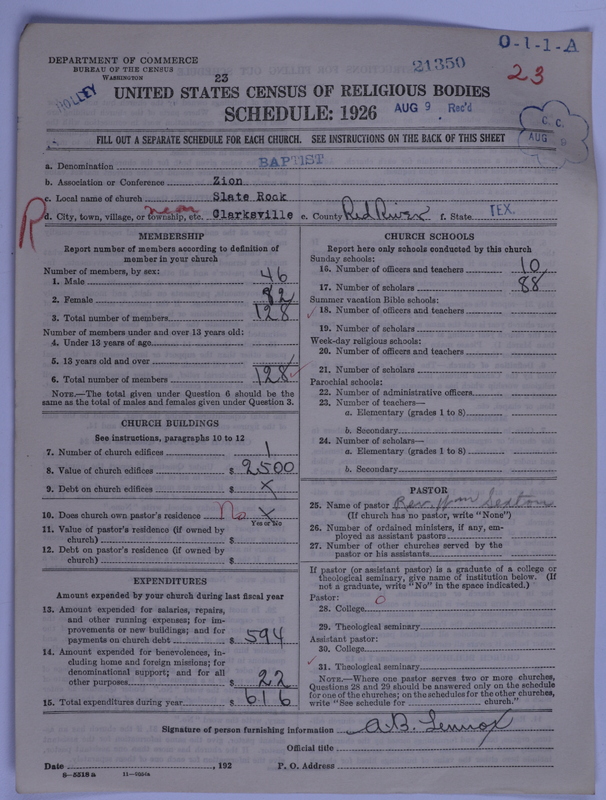 O-1-1-A
DEPARTMENT OF COMMERCE
BUREAU OF THE CENSUS
WASHINGTON
21350
23
23
HOLLEY
UNITED STATES CENSUS OF RELIGIOUS BODIES
SCHEDULE: 1926
AUG 9 Rec'd
C. C.
AUG 9
FILL OUT A SEPARATE SCHEDULE FOR EACH CHURCH. SEE INSTRUCTIONS ON THE BACK OF THIS SHEET
a. Denomination BAPTIST
b. Association or Conference Zion
c. Local name of church Slate Rock
R
d. City, town, village, or township, etc. near Clarksville e. County Red River f. State TEX.
MEMBERSHIP
Report number of members according to definition of
member in your church
Number of members, by sex:
1. Male 46
2. Female 82
3. Total number of members 128
Number of members under and over 13 years old:
4. Under 13 years of age
5. 13 years old and over
6. Total number of members 128
NOTE.—The total given under Question 6 should be the
same as the total of males and females given under Question 3.
CHURCH BUILDINGS
See instructions, paragraphs 10 to 12
7. Number of church edifices 1
8. Value of church edifices $ 2500
9. Debt on church edifices $ X
10. Does church own pastor's residence No X
Yes or No
11. Value of pastor's residence (if owned by
church) $
12. Debt on pastor's residence (if owned by
church) $
EXPENDITURES
Amount expended by your church during last fiscal year
13. Amount expended for salaries, repairs,
and other running expenses; for im-
provements or new buildings; and for
payments on church debt $ 594
14. Amount expended for benevolences, in-
cluding home and foreign missions; for
denominational support; and for all
other purposes $ 22
15. Total expenditures during year $ 616
CHURCH SCHOOLS
Report here only schools conducted by this church
Sunday schools:
16. Number of officers and teachers 10
17. Number of scholars 88
Summer vacation Bible schools:
18. Number of officers and teachers
19. Number of scholars
Week-day religious schools:
20. Number of officers and teachers
21. Number of scholars
Parochial schools:
22. Number of administrative officers
23. Number of teachers—
a. Elementary (grades 1 to 8)
b. Secondary
24. Number of scholars—
a. Elementary (grades 1 to 8)
b. Secondary
PASTOR
25. Name of pastor Rev. Wm Sexton
(If church has no pastor, write "None")
26. Number of ordained ministers, if any, em-
ployed as assistant pastors
27. Number of other churches served by the
pastor or his assistants
If pastor (or assistant pastor) is a graduate of a college or
theological seminary, give name of institution below. (If
not a graduate, write "No" in the space indicated.)
Pastor: 0
28. College
29. Theological seminary
Assistant pastor:
30. College
31. Theological seminary
NOTE.—Where one pastor serves two or more churches,
Questions 28 and 29 should be answered only on the schedule
for one of the churches; on the schedules for the other churches,
write "See schedule for church."
Signature of person furnishing information A.B. Lennox
Official title
Date , 192 P. O. Address
8—5518a 11—9950a